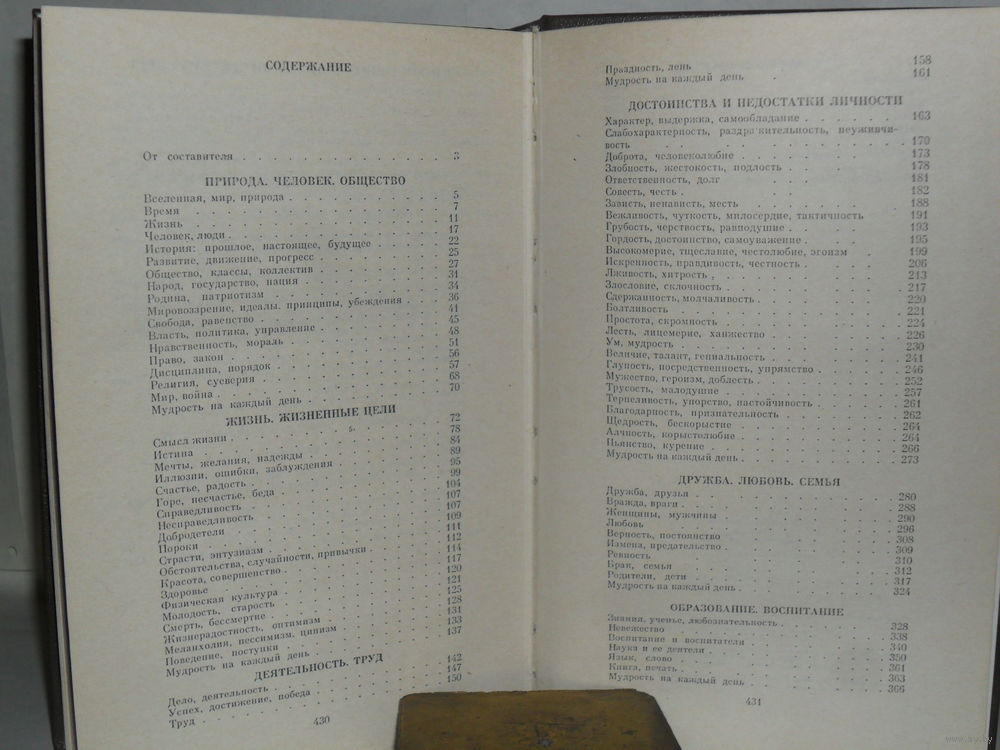 СОДЕРЖАНИЕ
От составителя . . . . . . . . . . . 3
ПРИРОДА. ЧЕЛОВЕК. ОБЩЕСТВО
Вселенная, мир, природа . . . . . . . . 5
Время . . . . . . . . . . . 7
Жизнь . . . . . . . . . . . 11
Человек, люди . . . . . . . . . . 17
История: прошлое, настоящее, будущее . . . . 22
Развитие, движение, прогресс . . . . . . 25
Общество, классы, коллектив . . . . . . 27
Народ, государство, нация . . . . . . . 31
Родина, патриотизм . . . . . . . . 34
Мировоззрение, идеалы, принципы, убеждения . . 36
Свобода, равенство . . . . . . . . 41
Власть, политика, управление . . . . . . 45
Нравственность, мораль . . . . . . . 48
Право, закон . . . . . . . . . 51
Дисциплина, порядок . . . . . . . . 56
Религия, суеверия . . . . . . . . 57
Мир, война . . . . . . . . . . 68
Мудрость на каждый день . . . . . . . 70
ЖИЗНЬ. ЖИЗНЕННЫЕ ЦЕЛИ
Смысл жизни . . . . . . . . . 72
Истина . . . . . . . . . . . 78
Мечты, желания, надежды . . . . . . . 84
Иллюзии, ошибки, заблуждения . . . . . . 89
Счастье, радость . . . . . . . . . 95
Горе, несчастье, беда . . . . . . . . 99
Справедливость . . . . . . . . . 104
Несправедливость . . . . . . . . . 107
Добродетели . . . . . . . . . . 107
Пороки . . . . . . . . . . . 109
Страсти, энтузиазм . . . . . . . . 111
Обстоятельства, случайности, привычки . . . . 112
Красота, совершенство . . . . . . . . 114
Здоровье . . . . . . . . . . 117
Физическая культура . . . . . . . . 120
Молодость, старость . . . . . . . . 121
Смерть, бессмертие . . . . . . . . 125
Жизнерадостность, оптимизм . . . . . . 128
Меланхолия, пессимизм, цинизм . . . . . 131
Поведение, поступки . . . . . . . . 133
Мудрость на каждый день . . . . . . . 137
ДЕЯТЕЛЬНОСТЬ. ТРУД
Дело, деятельность . . . . . . . . 142
Успех, достижение, победа . . . . . . . 147
Труд . . . . . . . . . . . 150
430
Праздность, лень 158
Мудрость на каждый день . 161
ДОСТОИНСТВА И НЕДОСТАТКИ ЛИЧНОСТИ
Характер, выдержка, самообладание . . . . . . 163
Слабохарактерность, раздражительность, неуживчи-
вость . . . . . . . . 170
Доброта, человеколюбие . . . . . . 173
Злобность, жестокость, подлость . . . . . 178
Ответственность, долг . . . . 181
Совесть, честь . . . . . . . 182
Зависть, ненависть, месть . . . . . 188
Вежливость, чуткость, милосердие, тактичность 191
Грубость, черствость, равнодушие . . . . 193
Гордость, достоинство, самоуважение . . . 195
Высокомерие, тщеславие, честолюбие, эгоизм . 199
Искренность, правдивость, честность . . . . 206
Лживость, хитрость . . . . . . . 213
Злословие, склочность . . . . . . . 217
Сдержанность, молчаливость . . . . . . 220
Болтливость . . . . . . . . . 221
Простота, скромность . . . . . . . 224
Лесть, лицемерие, ханжество . . . . . . 226
Ум, мудрость . . . . . . . . . 230
Величие, талант, гениальность . . . . . . 241
Глупость, посредственность, упрямство . . . . 246
Мужество, героизм, доблесть . . . . . . 252
Трусость, малодушие . . . . . . . . 257
Терпеливость, упорство, настойчивость . . . . 261
Благодарность, признательность . . . . . . 262
Щедрость, бескорыстие . . . . . . . 264
Алчность, корыстолюбие . . . . . . . 264
Пьянство, курение . . . . . . . . 266
Мудрость на каждый день . . . . . . . 273
ДРУЖБА. ЛЮБОВЬ. СЕМЬЯ
Дружба, друзья . . . . . . . . . 280
Вражда, враги . . . . . . . . . 288
Женщины, мужчины . . . . . . . . 290
Любовь . . . . . . . . . . 296
Верность, постоянство . . . . . . . 308
Измена, предательство . . . . . . . 309
Ревность . . . . . . . . . . 310
Брак, семья . . . . . . . . . 312
Родители, дети . . . . . . . . . 317
Мудрость на каждый день . . . . . . . 324
ОБРАЗОВАНИЕ. ВОСПИТАНИЕ
Знания, ученье, любознательность . . . . . 328
Невежество . . . . . . . . . 338
Воспитание и воспитатели . . . . . . 340
Наука и ее деятели . . . . . . . 350
Язык, слово . . . . . . . . . 361
Книга, печать . . . . . . . . . 363
Мудрость на каждый день . . . . . . . 366
431